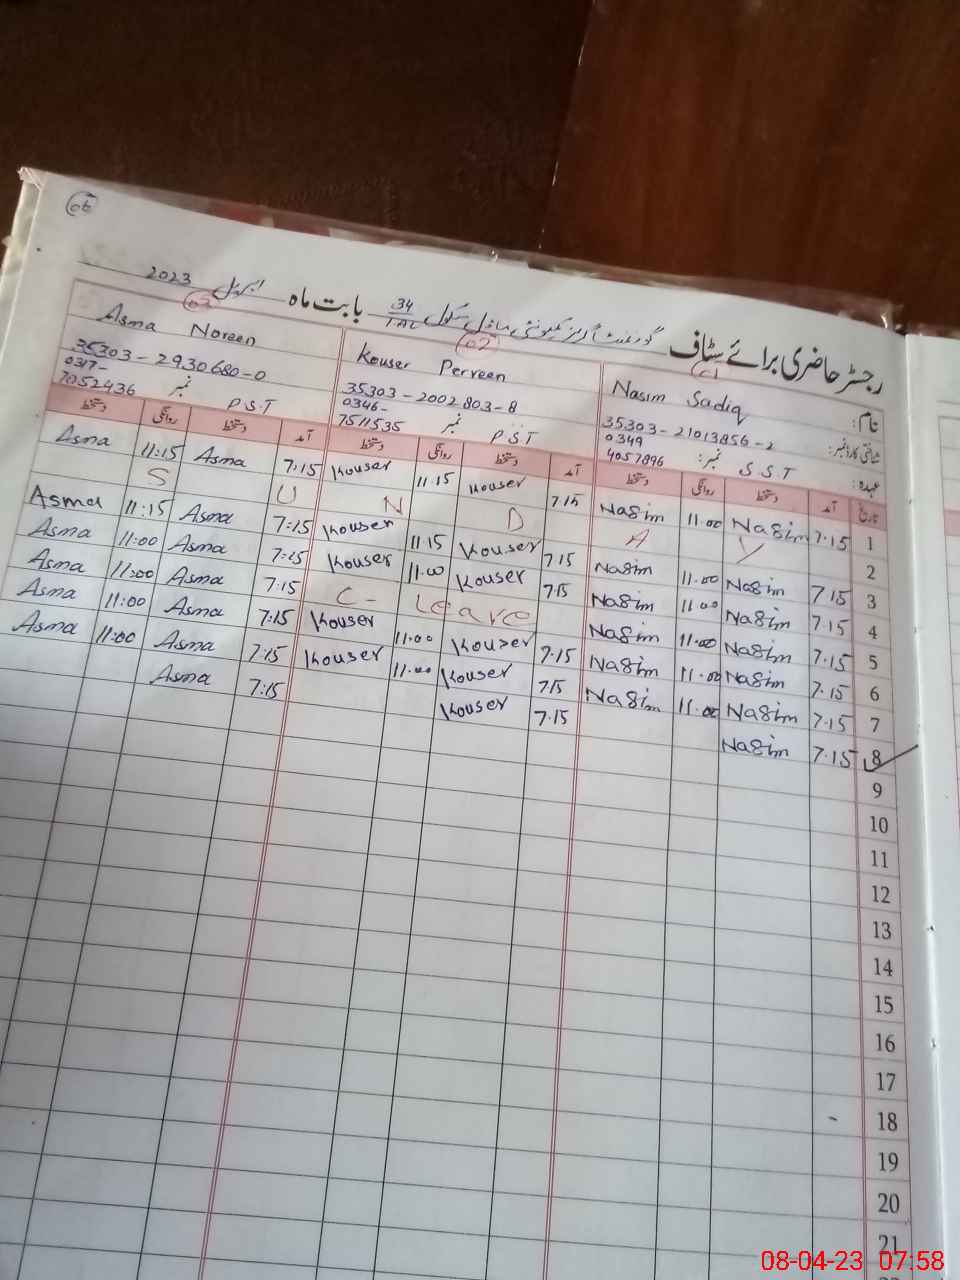 06
رجسٹر حاضری برائے سٹاف گورنمنٹ گرلز کمیونٹی ماڈل سکول 34/TAL بابت ماہ اپریل 2023
01 02 03
نام: Nasim Sadiq Kouser Perveen Asma Noreen
شناختی کارڈ نمبر: 35303-21013856-2 35303-2002803-8 35303-2930680-0
0349 4057896 نمبر: 0346-7511535 نمبر 0317-7052436 نمبر
عہدہ: S.S.T P.S.T P.S.T
تاریخ آمد دستخط روانگی دستخط آمد دستخط روانگی دستخط آمد دستخط روانگی دستخط
1 7.15 Nasim 11.00 Nasim 7.15 Kouser 11.15 Kouser 7:15 Asma 11:15 Asma
2 S U N D A Y
3 7.15 Nasim 11.00 Nasim 7.15 Kouser 11.15 Kouser 7:15 Asma 11:15 Asma
4 7.15 Nasim 11.00 Nasim 7.15 Kouser 11.00 Kouser 7:15 Asma 11:00 Asma
5 7.15 Nasim 11.00 Nasim C- Leave 7:15 Asma 11:00 Asma
6 7.15 Nasim 11.00 Nasim 7.15 Kouser 11.00 Kouser 7:15 Asma 11:00 Asma
7 7.15 Nasim 11.00 Nasim 7.15 Kouser 11.00 Kouser 7:15 Asma 11:00 Asma
8 7.15 Nasim 7.15 Kouser 7:15 Asma
9
10
11
12
13
14
15
16
17
18
19
20
21
08-04-23 07:58